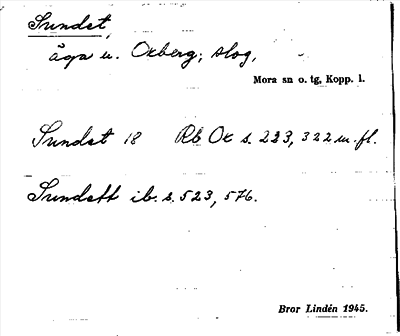 Sundet,
äga u. Oxberg; slog,
Mora sn o. tg, Kopp. l.
Sundet 18 Rb Ox s. 223, 322 m. fl.
Sundett ib. s. 523, 576.
Bror Lindén 1945.